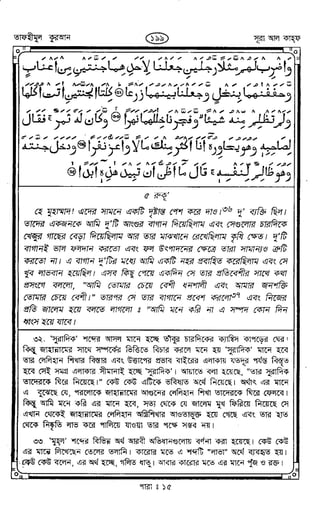 তাফহীমুল কুরআন ১১৯ সূরা আল কাহফ
وَاضْرِبْ لَهُمْ مَّثَلًا رَّجُلَيْنِ جَعَلْنَا لِأَحَدِهِمَا جَنَّتَيْنِ مِنْ أَعْنَابٍ
وَّحَفَفْنٰهُمَا بِنَخْلٍ وَّجَعَلْنَا بَيْنَهُمَا زَرْعًا ۝ كِلْتَا الْجَنَّتَيْنِ اٰتَتْ أُكُلَهَا
وَلَمْ تَظْلِمْ مِّنْهُ شَيْئًا وَّفَجَّرْنَا خِلٰلَهُمَا نَهَرًا ۝ وَّكَانَ لَهٗ ثَمَرٌ ۚ فَقَالَ
لِصَاحِبِهٖ وَهُوَ يُحَاوِرُهٗ أَنَا أَكْثَرُ مِنْكَ مَالًا وَّأَعَزُّ نَفَرًا ۝ وَدَخَلَ جَنَّتَهٗ
وَهُوَ ظَالِمٌ لِّنَفْسِهٖ ۚ قَالَ مَا أَظُنُّ أَنْ تَبِيْدَ هٰذِهٖ أَبَدًا ۝
৫ রুকূ'
হে মুহাম্মাদ! এদের সামনে একটি দৃষ্টান্ত পেশ করে দাও।৩৬ দু' ব্যক্তি ছিল।
তাদের একজনকে আমি দু'টি আংগুর বাগান দিয়েছিলাম এবং সেগুলোর চারদিকে
খেজুর গাছের বেড়া দিয়েছিলাম আর তার মাঝখানে রেখেছিলাম কৃষি ক্ষেত। দু'টি
বাগানই ভাল ফলদান করতো এবং ফল উৎপাদনের ক্ষেত্রে তারা সামান্যও ত্রুটি
করতো না। এ বাগান দু'টির মধ্যে আমি একটি নহর প্রবাহিত করেছিলাম এবং সে
খুব লাভবান হয়েছিল। এসব কিছু পেয়ে একদিন সে তার প্রতিবেশীর সাথে কথা
প্রসংগে বললো, "আমি তোমার চেয়ে বেশী ধনশালী এবং আমার জনশক্তি
তোমার চেয়ে বেশী।" তারপর সে তার বাগানে প্রবেশ করলো৩৭ এবং নিজের
প্রতি জালেম হয়ে বলতে লাগলো ঃ "আমি মনে করি না এ সম্পদ কোন দিন
ধ্বংস হয়ে যাবে।
৩২. 'সুরাদিক' শব্দের আসল মানে হচ্ছে তাঁবুর চারদিকের ক্যাম্বিস কাপড়ের ঘের।
কিন্তু জাহান্নামের সাথে সম্পর্কের ভিত্তিতে বিচার করলে মনে হয় 'সুরাদিক' মানে হবে
তার লেলিহান শিখার বিস্তার এবং উত্তাপের প্রভাব বাইরের এলাকায় যতদূর পর্যন্ত বিস্তৃত
হবে সেই সমগ্র এলাকার সীমানাই হচ্ছে 'সুরাদিক'। আয়াতে বলা হয়েছে, "তার সুরাদিক
তাদেরকে ঘিরে নিয়েছে।" কেউ কেউ এটিকে ভবিষ্যত অর্থে নিয়েছে। অর্থাৎ এর মানে
এ বুঝেছে যে, পরলোকে জাহান্নামের আগুনের লেলিহান শিখা তাদেরকে ঘিরে ফেলবে।
কিন্তু আমি মনে করি এর মানে হবে, সত্য থেকে যে জালেম মুখ ফিরিয়ে নিয়েছে সে
এখান থেকেই জাহান্নামের লেলিহান অগ্নিশিখার আওতাভুক্ত হয়ে গেছে এবং তার হাত
থেকে নিষ্কৃতি লাভ করে পালিয়ে যাওয়া তার পক্ষে সম্ভব নয়।
৩৩. 'মুহল' শব্দের বিভিন্ন অর্থ আরবী অভিধানগুলোয় বর্ণনা করা হয়েছে। কেউ কেউ
এর মানে লিখেছেন তেলের তলানি। কারোর মতে এ শব্দটি "লাভা" অর্থে ব্যবহৃত হয়।
কেউ কেউ বলেন, এর অর্থ হচ্ছে, গলিত ধাতু। আবার কারোর মতে এর মানে পুঁজ ও রক্ত।
পারা ঃ ১৫